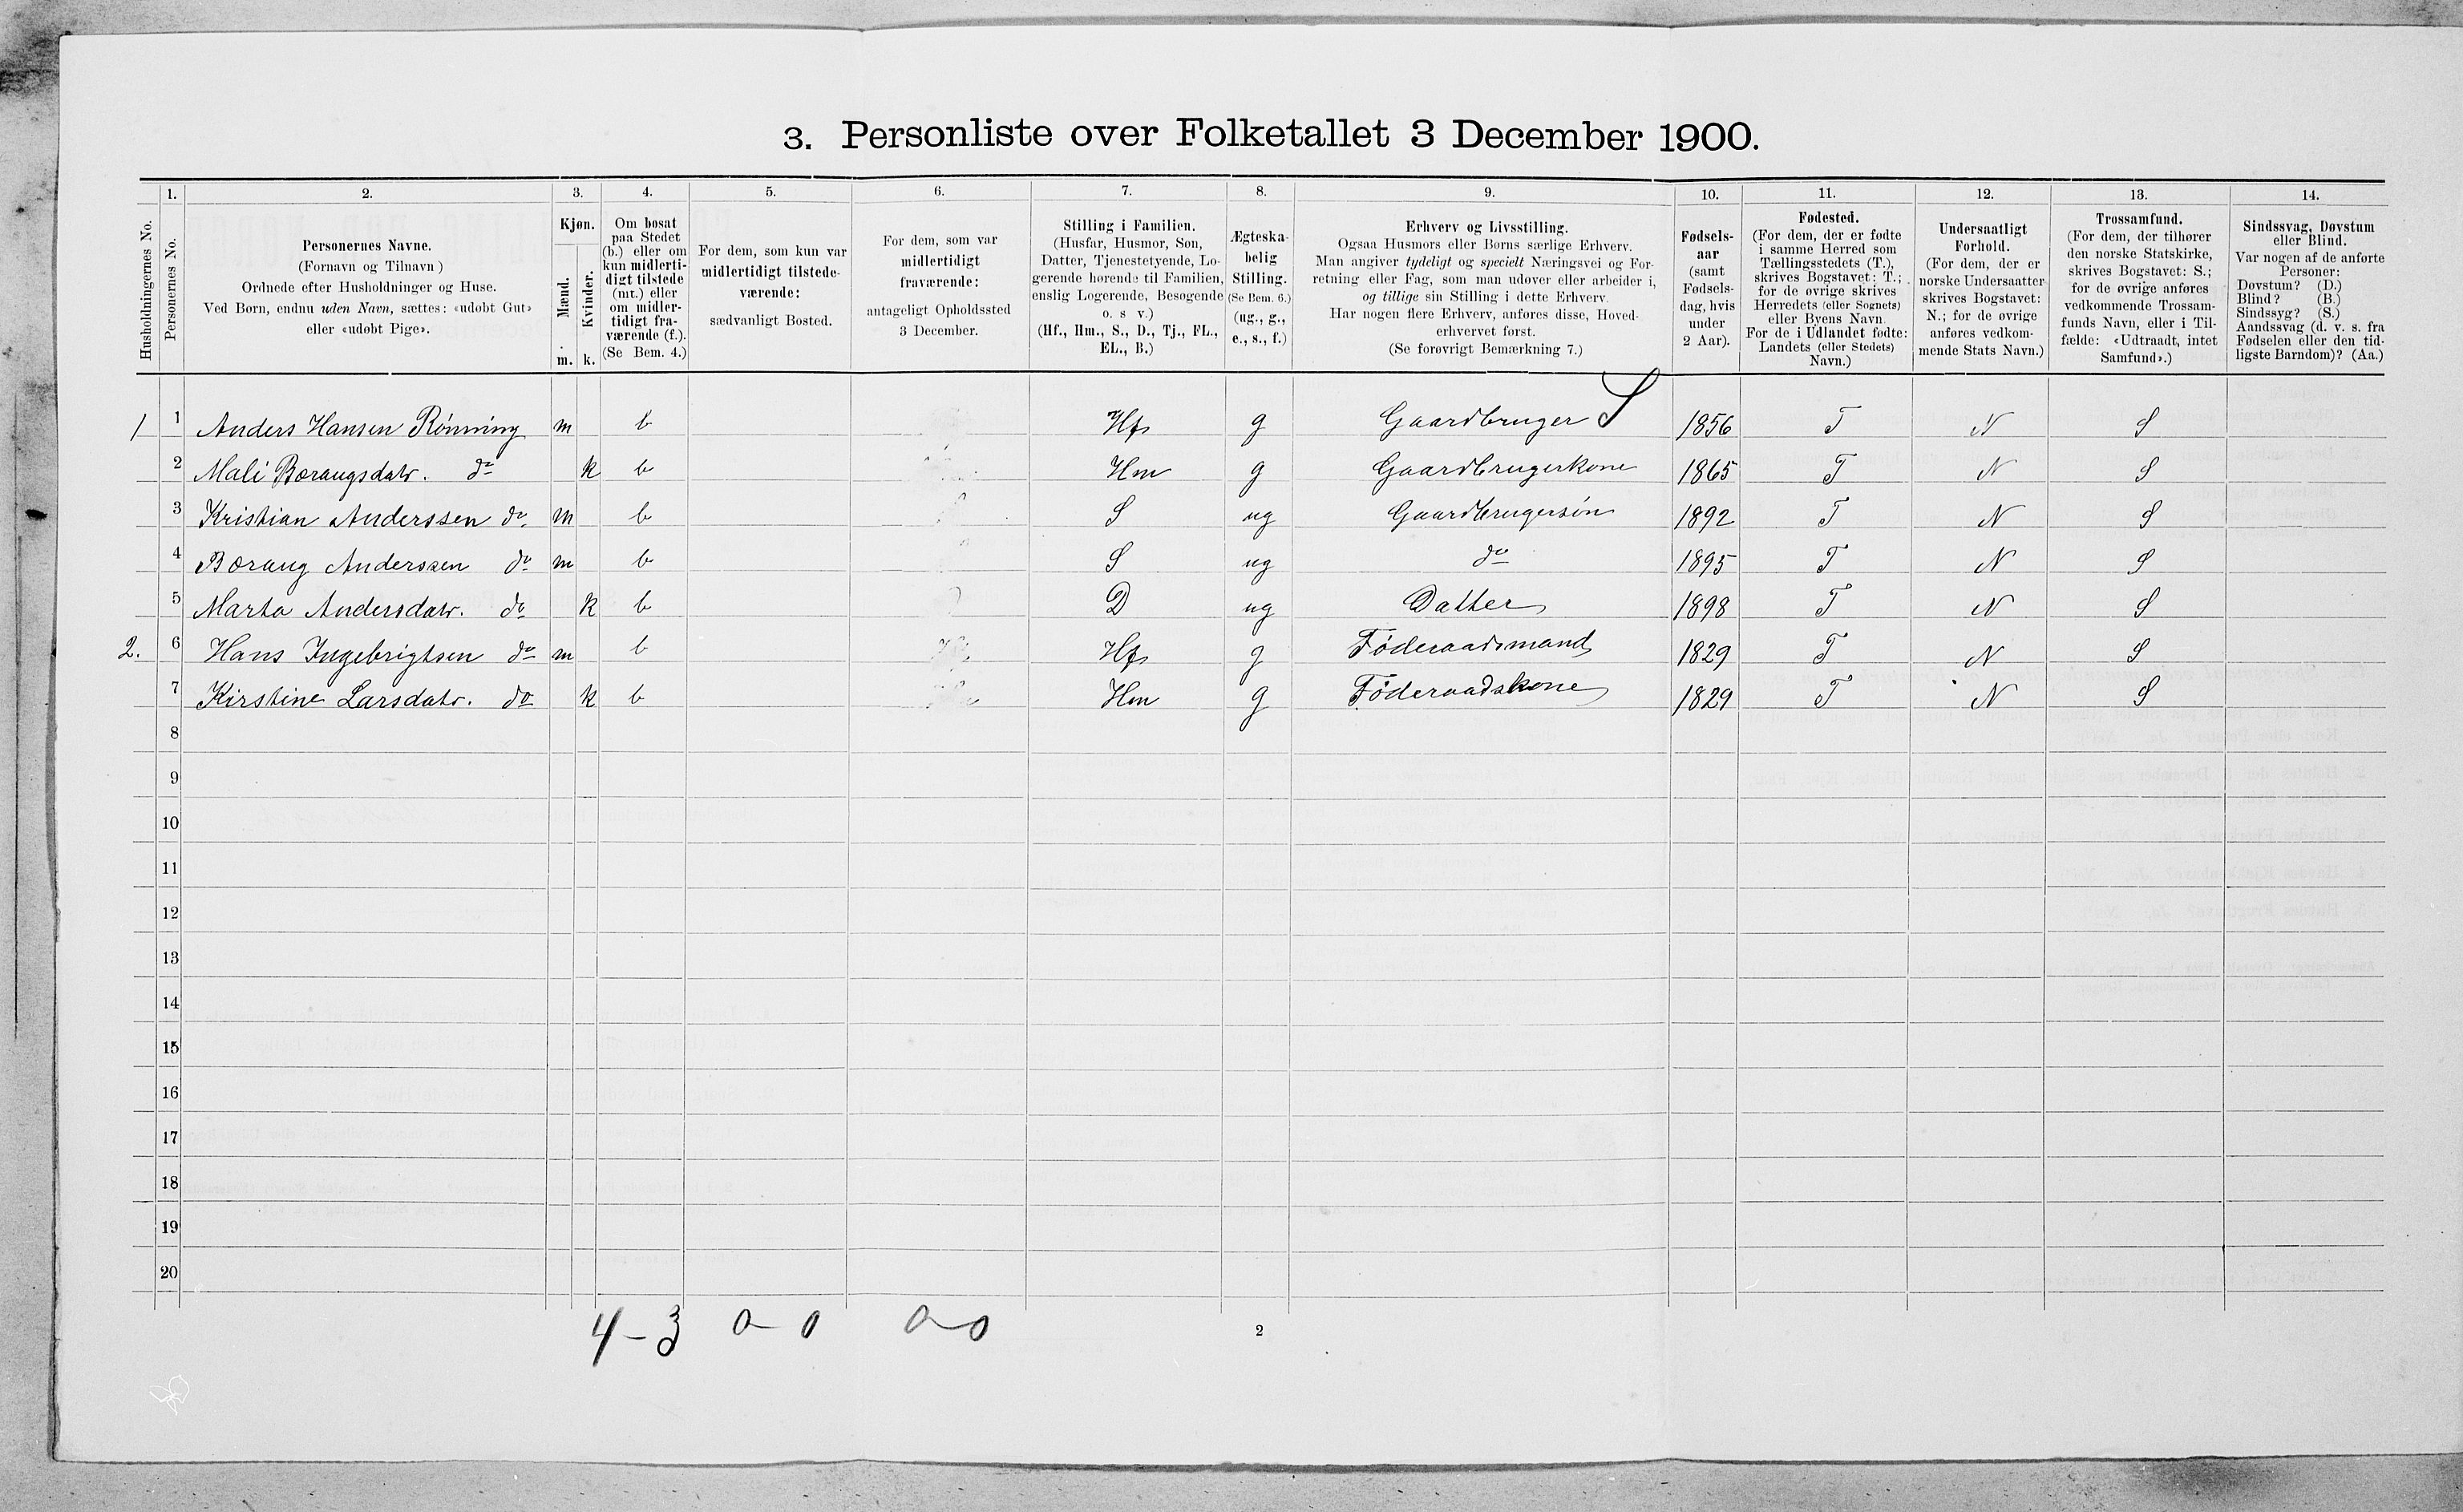 3. Personliste over Folketallet 3 December 1900.
Husholdningernes No.
1.
Personernes No.
2.
Personernes Navne.
(Fornavn og Tilnavn)
Ordnede efter Husholdninger og Huse.
Ved Børn, endnu uden Navn, sættes: «udøbt Gut»
eller «udøbt Pige».
3.
Kjøn.
Mænd.
m.
Kvinder.
k.
4.
Om bosat
paa Stedet
(b.) eller om
kun midlerti-
digt tilstede
(mt.) eller
om midler-
tidigt fra-
værende (f.).
(Se Bem. 4.)
5.
For dem, som kun var
midlertidigt tilstede-
værende:
sædvanligt Bosted.
6.
For dem, som var
midlertidigt
fraværende:
antageligt Opholdssted
3 December.
7.
Stilling i Familien.
(Husfar, Husmor, Søn,
Datter, Tjenestetyende, Lo-
gerende hørende til Familien,
enslig Logerende, Besøgende
o. s. v.)
(Hf., Hm., S., D., Tj., FL.,
EL., B.)
8.
Ægteska-
belig
Stilling.
(Se Bem. 6.)
(ug., g.,
e., s., f.)
9.
Erhverv og Livsstilling.
Ogsaa Husmors eller Børns særlige Erhverv.
Man angiver tydeligt og specielt Næringsvei og For-
retning eller Fag, som man udøver eller arbeider i,
og tillige sin Stilling i dette Erhverv.
Har nogen flere Erhverv, anføres disse, Hoved-
erhvervet først.
(Se forøvrigt Bemærkning 7.)
10.
Fødsels-
aar
(samt
Fødsels-
dag, hvis
under
2 Aar).
11.
Fødested.
(For dem, der er fødte
i samme Herred som
Tællingsstedets (T.),
skrives Bogstavet: T.;
for de øvrige skrives
Herredets (eller Sognets)
eller Byens Navn.
For de i Udlandet fødte:
Landets (eller Stedets)
Navn.)
12.
Undersaatligt
Forhold.
(For dem, der er
norske Undersaatter
skrives Bogstavet:
N.; for de øvrige
anføres vedkom-
mende Stats Navn.)
13.
Trossamfund.
(For dem, der tilhører
den norske Statskirke,
skrives Bogstavet: S.;
for de øvrige anføres
vedkommende Trossam-
funds Navn, eller i Til-
fælde: «Udtraadt, intet
Samfund».)
14.
Sindssvag, Døvstum
eller Blind.
Var nogen af de anførte
Personer:
Døvstum? (D.)
Blind? (B.)
Sindssyg? (S.)
Aandssvag (d. v. s. fra
Fødselen eller den tid-
ligste Barndom)? (Aa.)
1 1 Anders Hansen Rønning m b Hf g Gaardbruger S 1856 T N S
2 Mali Boraugsdatr. do k b Hm g Gaardbrugerkone 1865 T N S
3 Kristian Anderssen do m b S ug Gaardbrugersøn 1892 T N S
4 Boraug Anderssen do m b S ug do 1895 T N S
5 Marta Andersdatr. do k b D ug Datter 1898 T N S
2. 6 Hans Ingebrigtsen do m b Hf g Føderaadsmand 1829 T N S
7 Kirstine Larsdatr. do k b Hm g Føderaadskone 1829 T N S
8
9
10
11
12
13
14
15
16
17
18
19
20
4-3 0-0 0-0
2